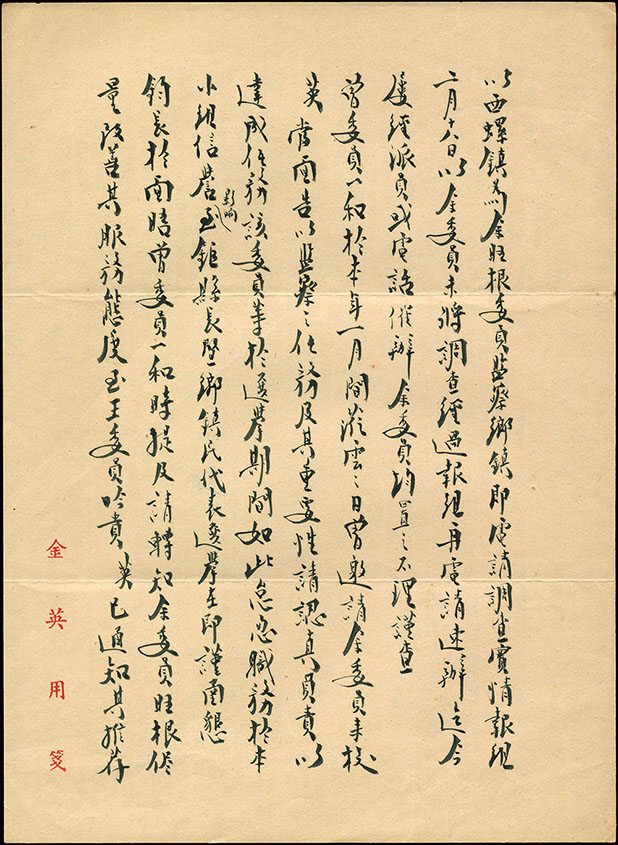 以西螺鎮為余旺根委員監察鄉鎮即電請調查實情報組
二月十八日以余委員未將調查經過報組再電請速辦迄今
屢經派員或電話催辦余委員均置之不理謹查
曾委員一和於本年一月間蒞雲之日曾邀請余委員來校
英當面告以監察之任務及其重要性請認真負責以
達成任務該委員韋於選舉期間如此怠忽職務於本
小組信譽影响至鉅縣長暨鄉鎮民代表選舉在即謹函懇
鈞長於面晤曾委員一和時提及請轉知余委員旺根儘
量改善其服務態度至王委員吟貴英已通知其推荐
金英用箋